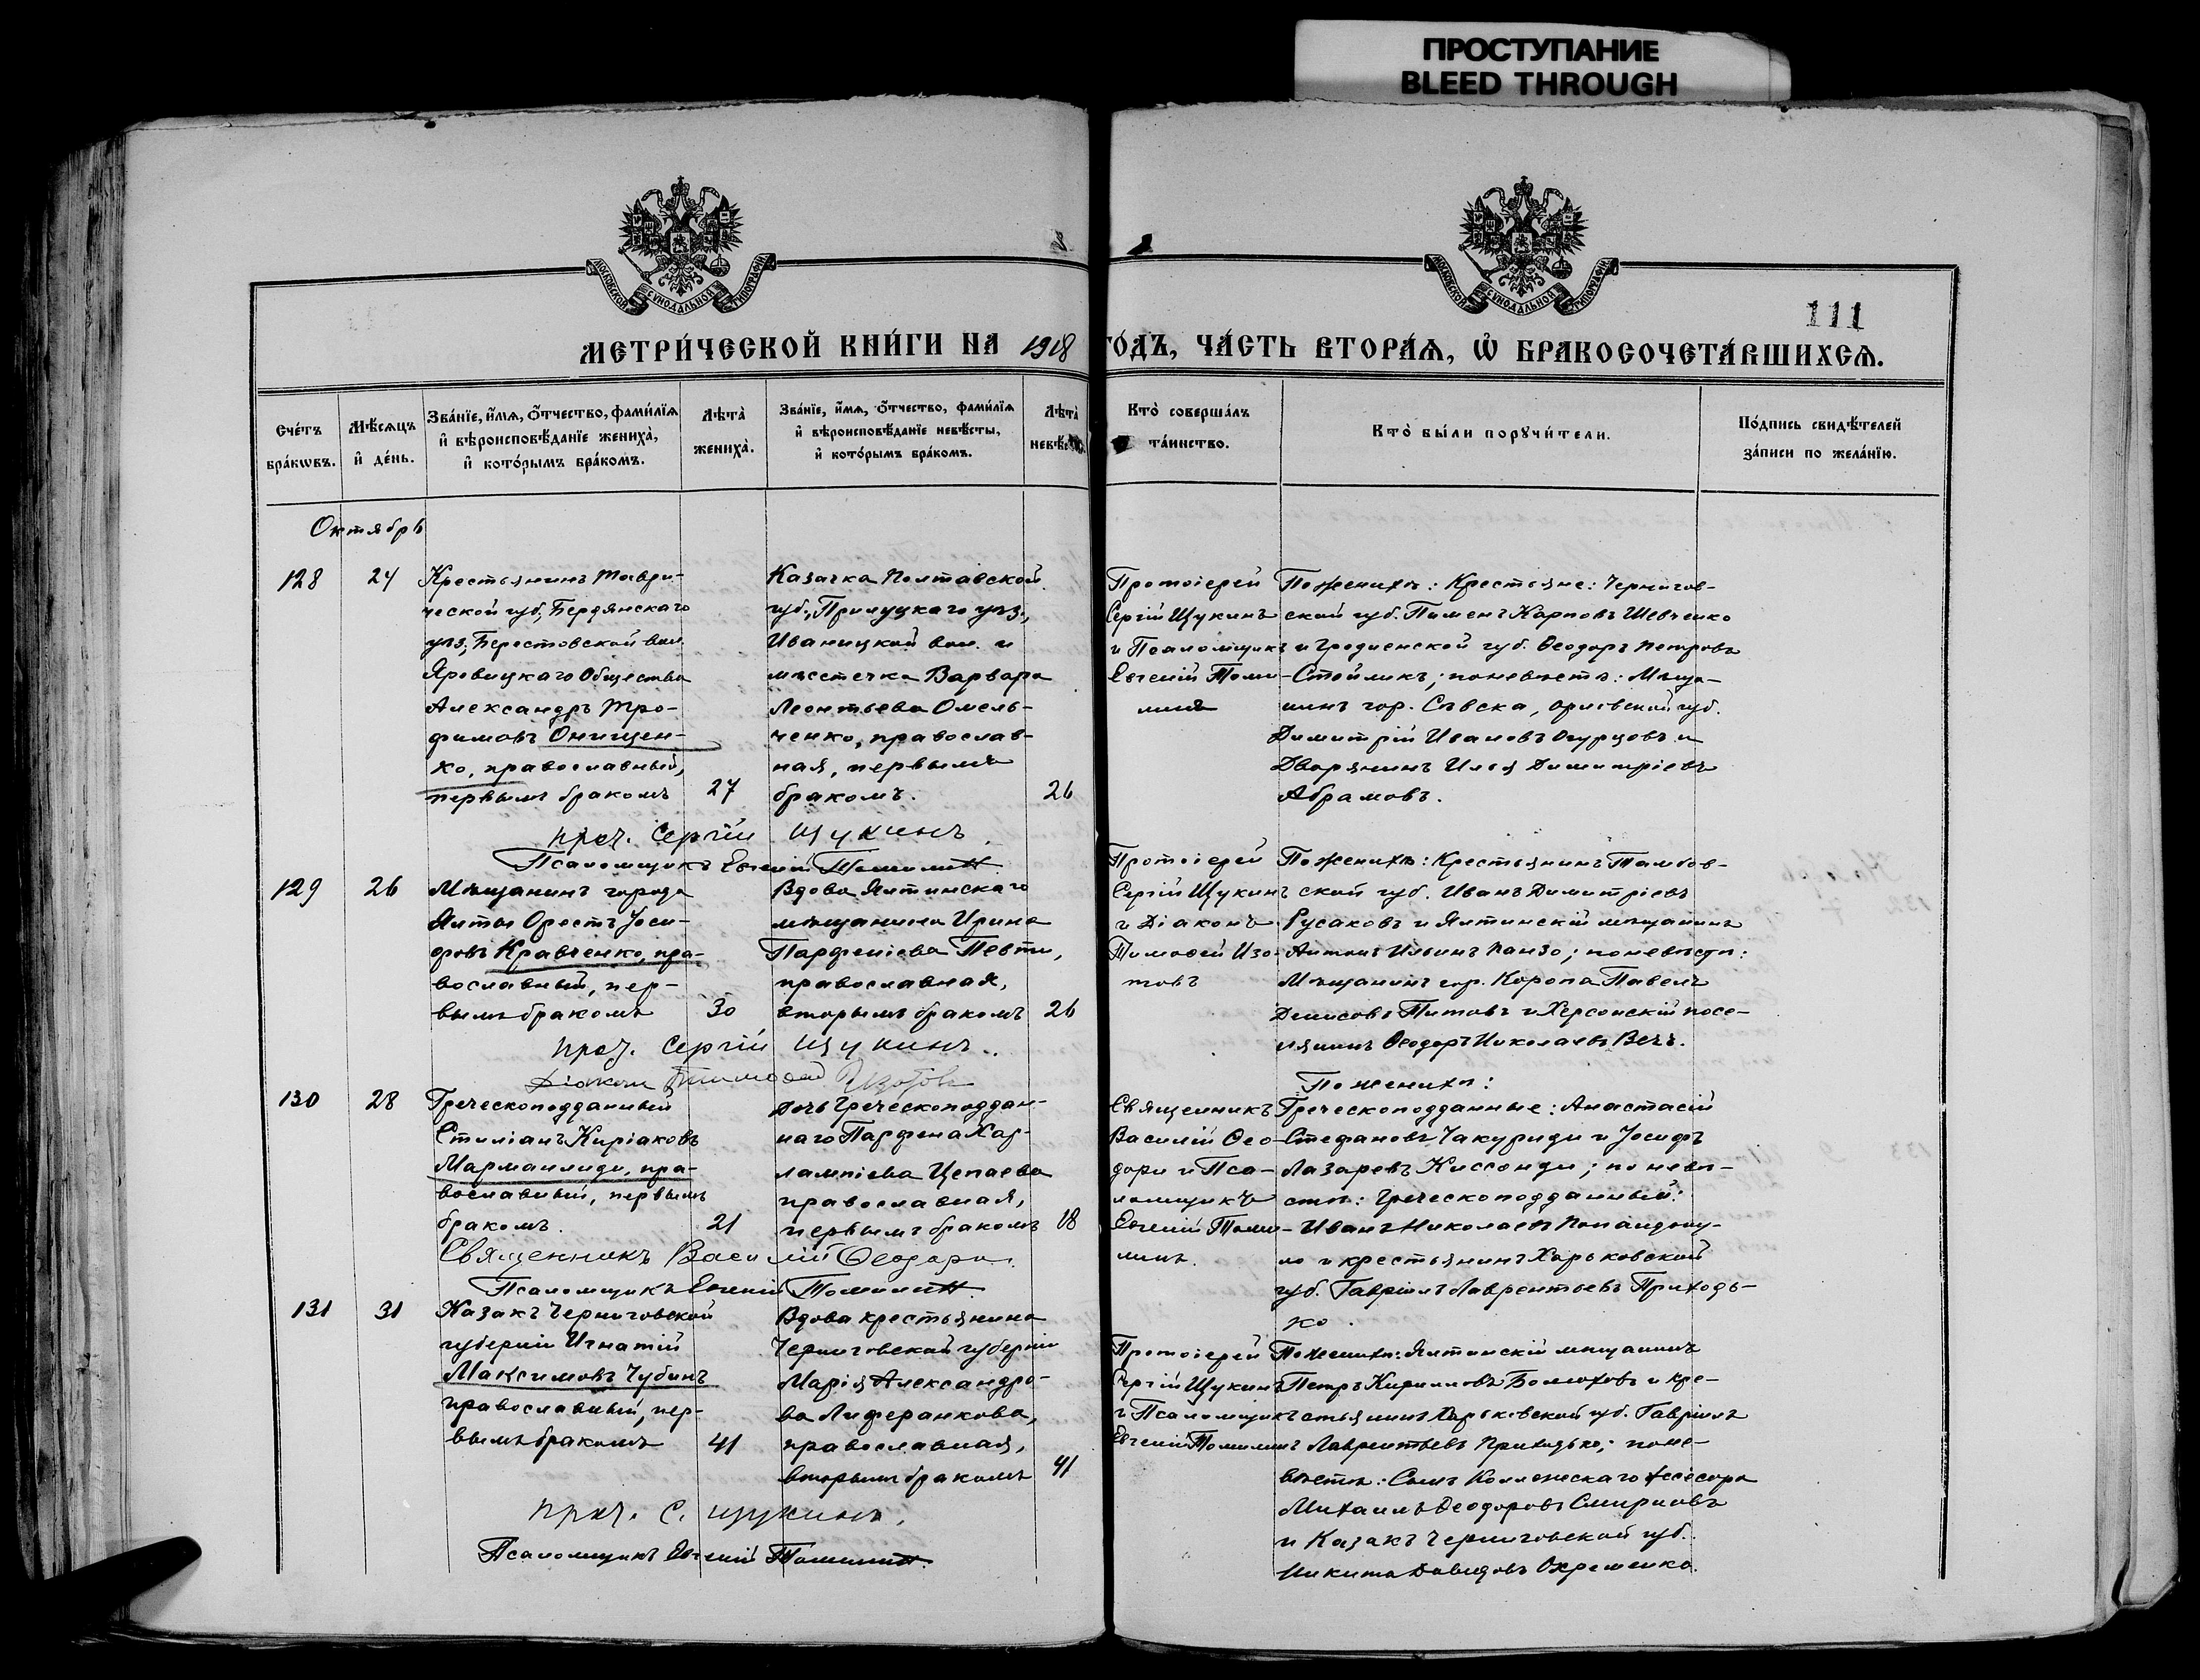 ПРОСТУПАНИЕ
BLEED THROUGH
МОСКОВСКОЙ СѴНОДАЛЬНОЙ ТИПОГРАФІИ
МОСКОВСКОЙ СѴНОДАЛЬНОЙ ТИПОГРАФІИ
111
МЕТРИ́ЧЕСКОЙ КНИ́ГИ НА 1918 ГО́ДЪ, ЧА́СТЬ ВТОРА́Ѧ, Ѡ҆ БРАКОСОЧЕТА́ВШИХСѦ.
Сче́тъ
бра́кѡвъ.
Мѣ́сѧцъ
и҆ де́нь.
Зва́нїе, и҆́мѧ, о҆́тчество, фами́лїѧ
и҆ вѣроисповѣ́данїе жениха̀,
и҆ кото́рымъ бра́комъ.
Лѣ́та̀
жениха̀.
Зва́нїе, и҆́мѧ, о҆́тчество, фами́лїѧ
и҆ вѣроисповѣ́данїе невѣ́сты,
и҆ кото́рымъ бра́комъ.
Лѣ́та̀
невѣ́с
Кто̀ соверша́лъ
та́инство.
Кто̀ бы́ли порꙋчи́тели.
По́дпись свидѣ́телей
за́писи по жела́нїю.
Октябрь
128
24
Крестьянинъ Таври-
ческой губ., Бердянскаго
уѣз., Берестовской вол.
Яровицкаго Общества
Александръ Тро-
фимовъ Онищен-
ко, православный,
первымъ бракомъ
27
Казачка Полтавской
губ., Прилуцкаго уѣз.,
Иваницкой вол. и
мѣстечка Варвара
Леонтьева Омель-
ченко, православ-
ная, первымъ
бракомъ.
26
Протоіерей
Сергій Щукинъ
и Псаломщикъ
Евгеній Томи-
линъ
По женихѣ: Крестьяне: Чернигов-
ской губ. Пименъ Карповъ Шевченко
и Гродненской губ. Ѳеодоръ Петровъ
Стойликъ; по невѣстѣ: Мѣща-
нинъ гор. Сѣвска, Орловской губ.
Димитрій Ивановъ Огурцовъ и
Дворянинъ Илья Димитріевъ
Абрамовъ.
прот. Сергій Щукинъ.
Псаломщикъ Евгеній Томилин
129
26
Мѣщанинъ города
Ялты Орестъ Іоси-
фовъ Кравченко, пра-
вославный, пер-
вымъ бракомъ
30
Вдова Ялтинскаго
мѣщанина Ирина
Парфеніева Певти,
православная,
вторымъ бракомъ
26
Протоіерей
Сергій Щукинъ
и Діаконъ
Тимоѳей Изо-
товъ
По женихѣ: Крестьянинъ Тамбов-
ской губ. Иванъ Димитріевъ
Русаковъ и Ялтинскій мѣщанинъ
Антонъ Ильинъ Панзо; по невѣстѣ:
Мѣщанинъ гор. Коропа Павелъ
Денисовъ Титовъ и Херсонскій посе-
лянинъ Ѳеодоръ Николаевъ Вечъ.
прот. Сергій Щукинъ.
Діаконъ Тимоѳей Изотовъ
130
28
Греческоподданный
Стиліанъ Киріаковъ
Мармаилиди, пра-
вославный, первымъ
бракомъ.
21
дочь Греческоподдан-
наго Парфена Хар-
лампіева Цепаева
православная,
первымъ бракомъ
18
Священникъ
Василій Ѳео-
дори и Пса-
ломщикъ
Евгеній Томи-
линъ.
По женихѣ:
Греческоподданные: Анастасій
Стефановъ Чакуриди и Іосифъ
Лазаревъ Киссонди; по невѣ-
стѣ: Греческоподданный:
Иванъ Николаевъ Попандопу-
ло и крестьянинъ Харьковской
губ. Гавріилъ Лаврентьевъ Приходь-
ко.
Священникъ Василій Ѳеодори.
Псаломщикъ Евгеній Томилин
131
31
Казакъ Черниговской
губерніи Игнатій
Максимовъ Чубинъ
православный, пер-
вымъ бракомъ
41
Вдова крестьянина
Черниговской губерніи
Марія Александро-
ва Лиферанкова,
православная,
вторымъ бракомъ
41
Протоіерей
Сергій Щукинъ
и Псаломщикъ
Евгеній Томилинъ
По женихѣ: Ялтинскій мѣщанинъ
Петръ Кирилловъ Болюховъ и кре-
стьянинъ Харьковской губ. Гавріилъ
Лаврентьевъ Приходько; по не-
вѣстѣ: Сынъ Коллежскаго Ассесора
Михаилъ Ѳеодоровъ Смирновъ
и Казакъ Черниговской губ.
Никита Давидовъ Охременко.
прот. С. Щукинъ.
Псаломщикъ Евгеній Томилин